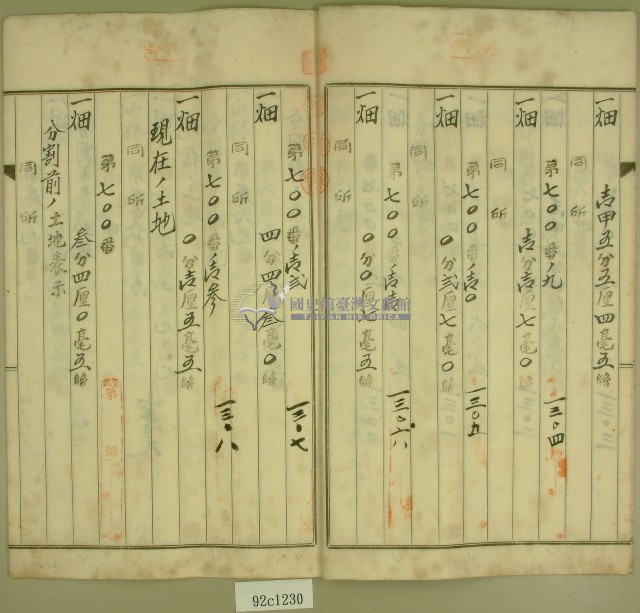 壱甲五分五厘四毫五絲
同所
第七〇〇番ノ九
一三〇四
一畑
壱分壱厘七毫〇
同所
第七〇〇番ノ壱〇
一三〇五
一畑
〇分弐厘七毫〇絲
同所
第七〇〇番ノ壱壱
一三〇六
一畑
同所
第七〇〇番ノ壱弐
一三〇七
一畑
四分四厘叁毫〇絲
同所
第七〇〇番ノ壱参
一三〇八
一畑
〇分壱厘五毫五絲
現在ノ土地
同所
第七〇〇番
一畑
叁分四厘〇毫五絲
分割前ノ土地表示
同所
國史館臺灣文獻館
TAIWAN HISTORICA
92c1230